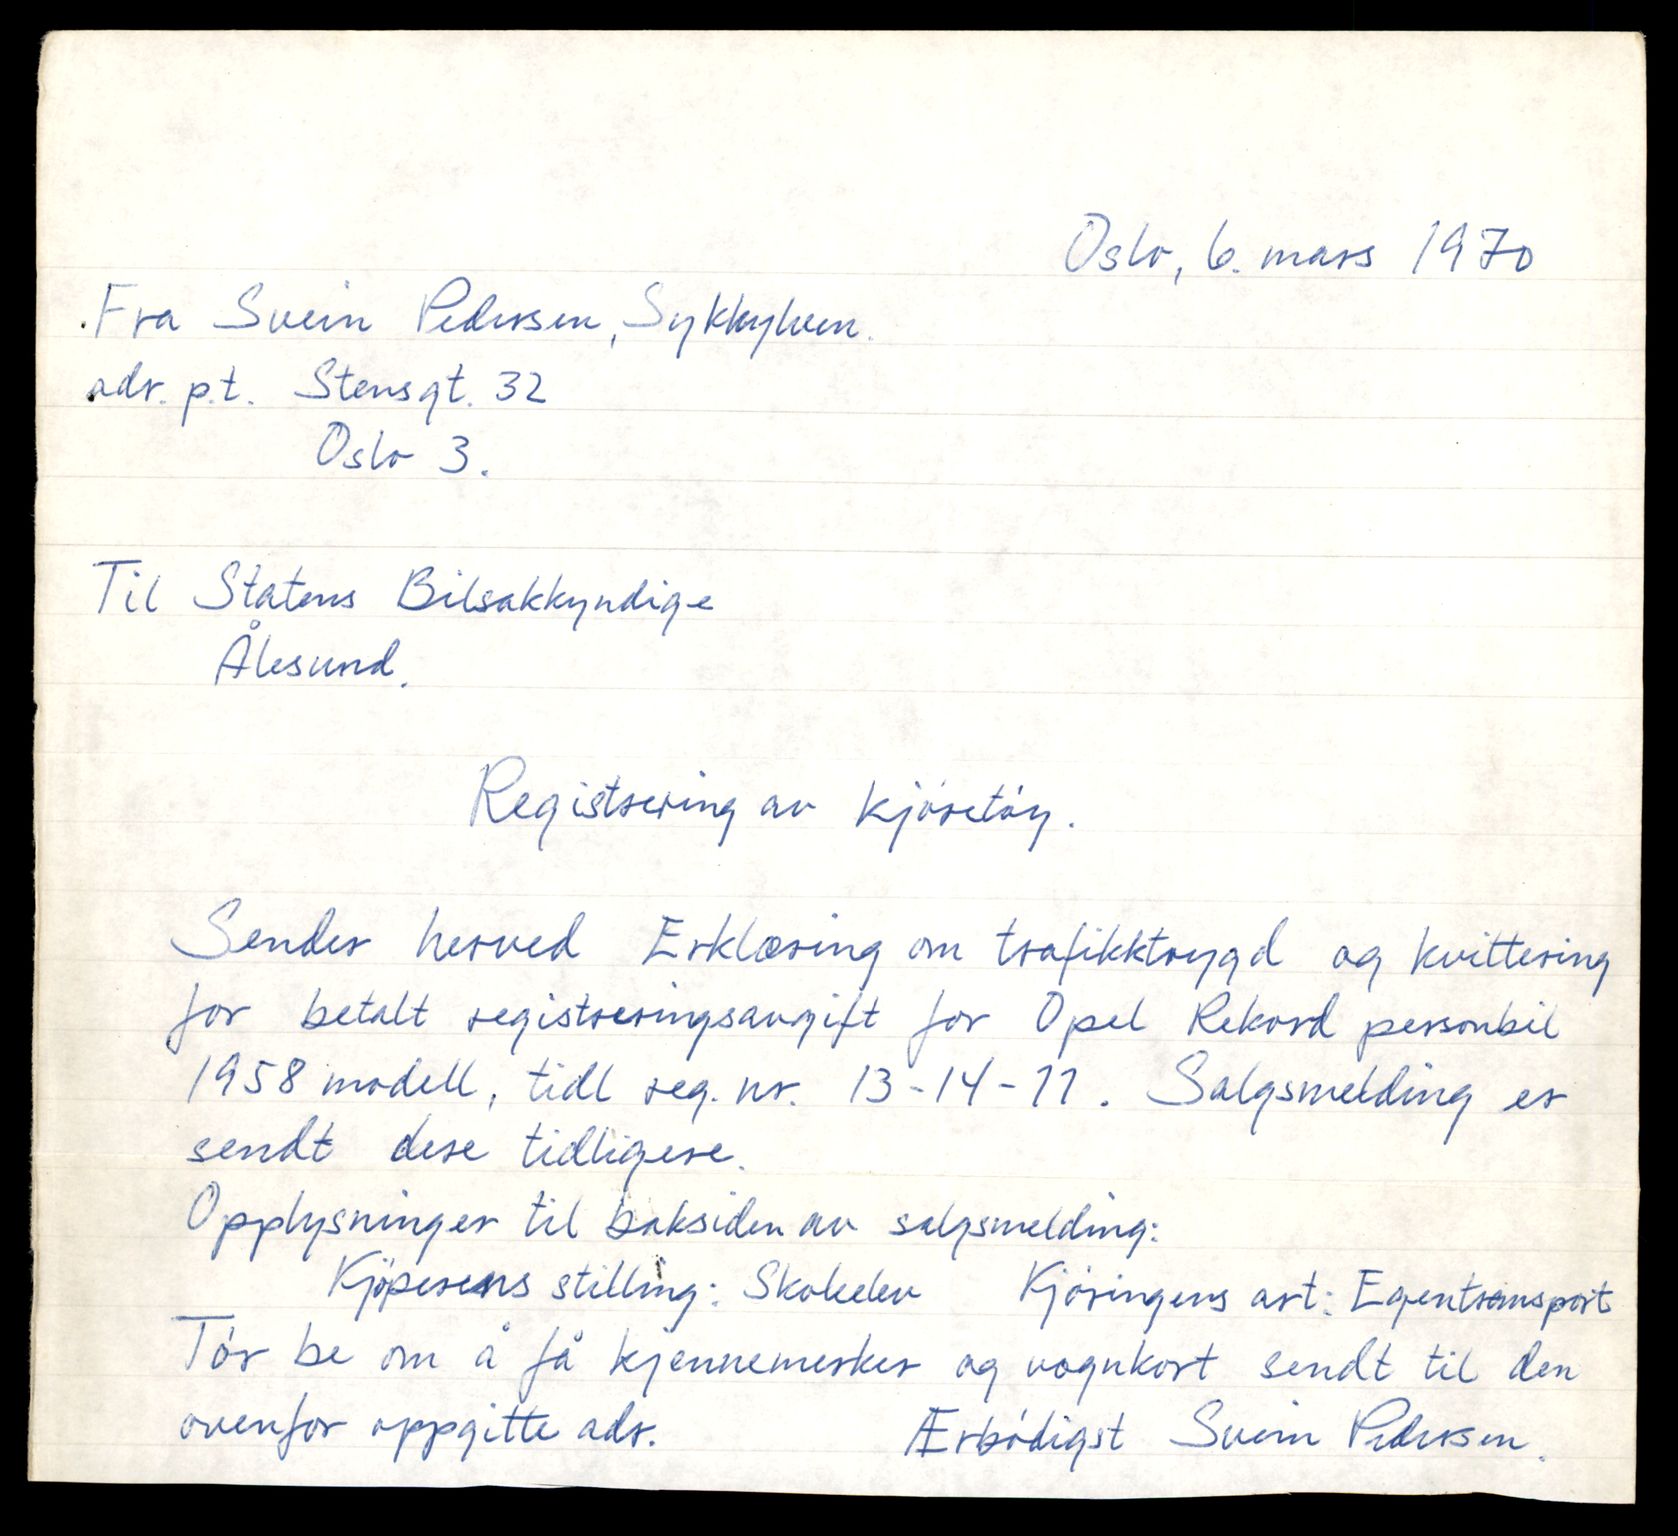 Oslo, 6. mars 1970
Fra Svein Pedersen, Sykkylven.
adr. p.t. Stensgt. 32
Oslo 3.
Til Statens Bilsakkyndige
Ålesund.
Registrering av kjóretóy.
Sender herved Erklæring om trafikktrygd og kvittering
for betalt registreringsavgift for Opel Rekord personbil
1958 modell, tidl reg. nr. 13-14-11. Salgsmelding er
sendt dere tidligere.
Opplysninger til baksiden av salgsmelding:
Kjöperens stilling: Skoleelev Kjóringens art: Egentransport
Tór be om å få kjennemerker og vognkort sendt til den
ovenfor oppgitte adr. Ærbódigst Svein Pedersen.